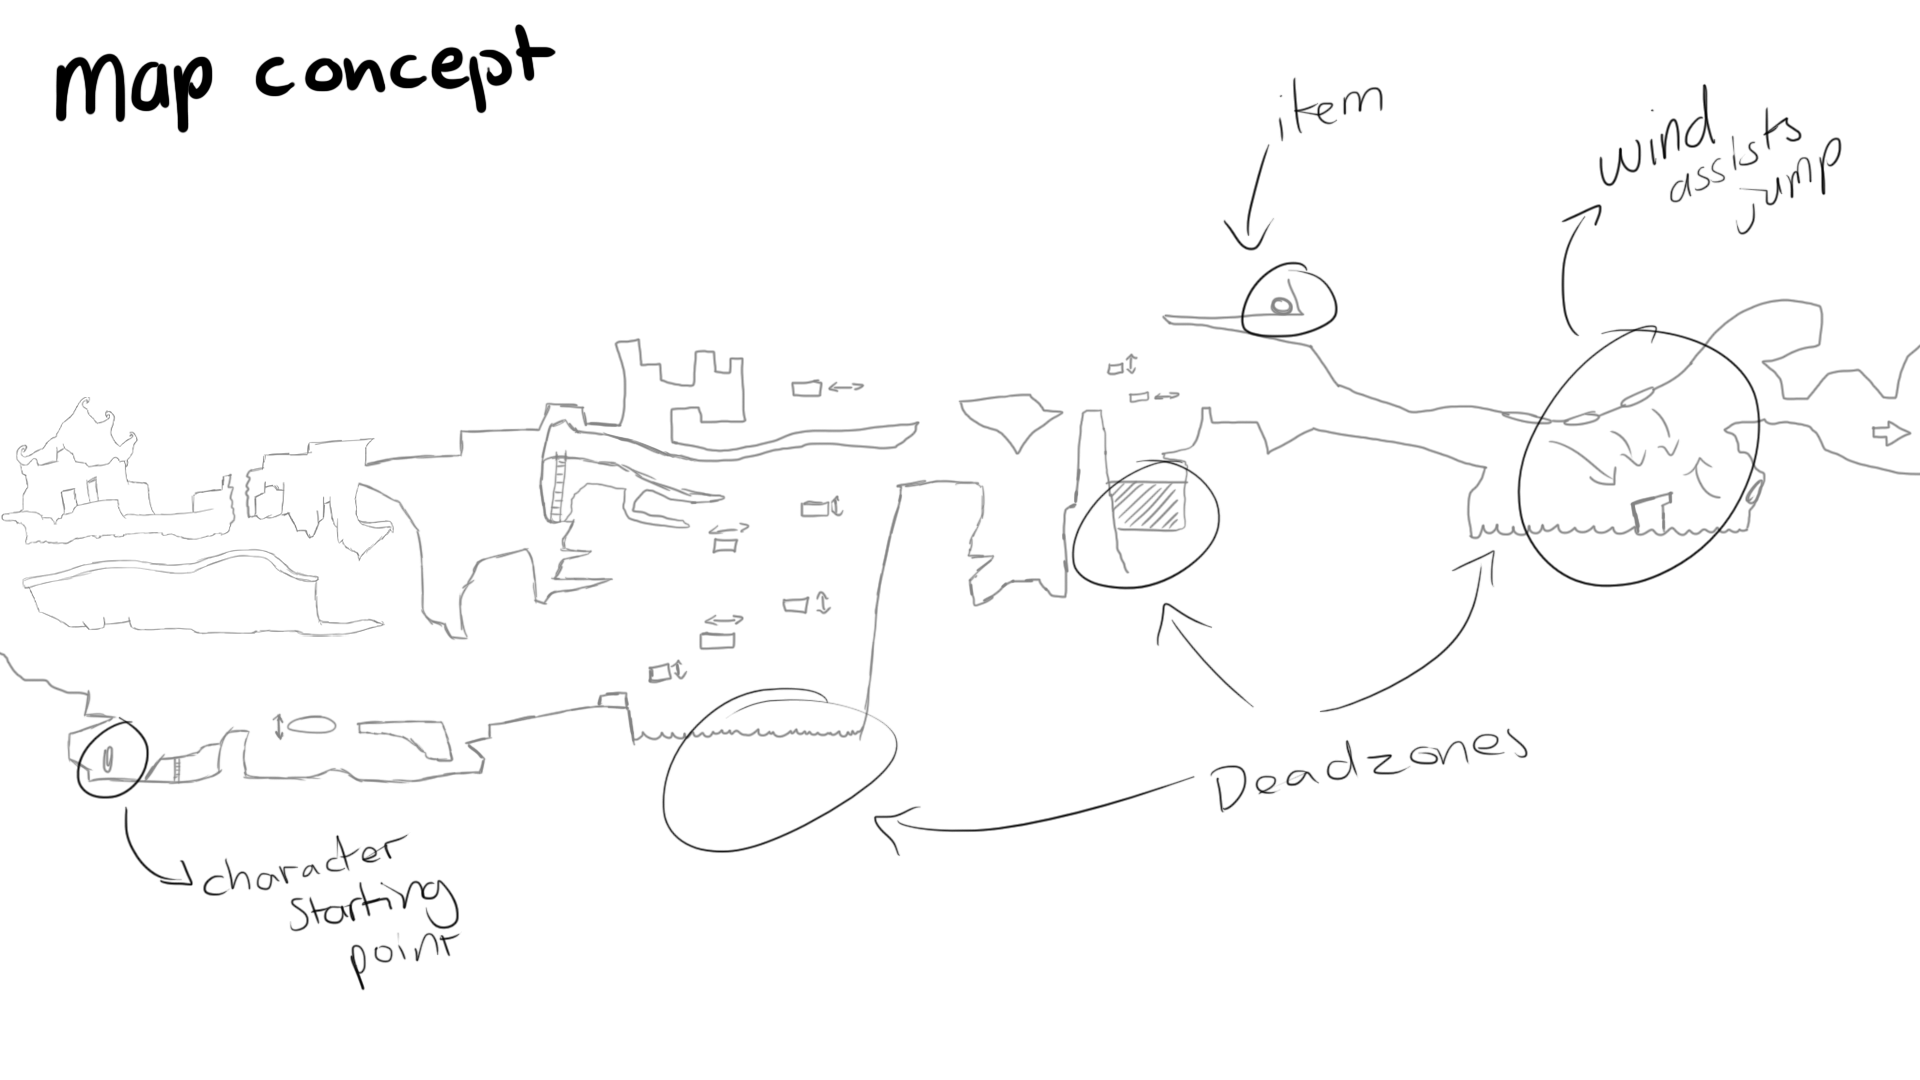 map concept
item
wind
assists
jump
Deadzones
character
starting
point